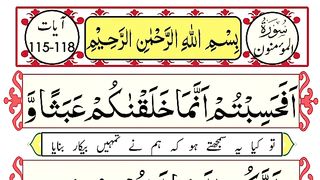 سُورَةُ المؤمنون
بِسْمِ اللهِ الرَّحْمٰنِ الرَّحِيْمِ
آیات 115-118
اَفَحَسِبْتُمْ اَنَّمَا خَلَقْنٰكُمْ عَبَثًا وَّ
تو کیا یہ سمجھتے ہو کہ ہم نے تمہیں بیکار بنایا